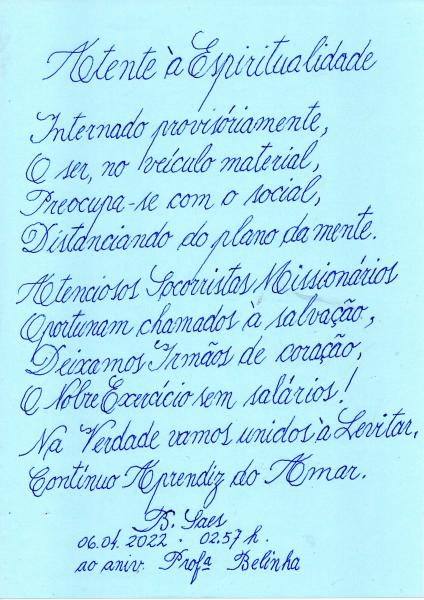 Atente à Espiritualidade
Internado provisóriamente,
O ser, no veículo material,
Preocupa-se com o social,
Distanciando do plano da mente.
Atenciosos Socorristas Missionários
Oportunam chamados à salvação,
Deixamos Irmãos de coração,
O Nobre Exercício sem salários!
Na Verdade vamos unidos à Levitar,
Contínuo Aprendiz do Amar.
B. Saes
06.04.2022 . 02.57 h.
ao aniv. Profª Belinha